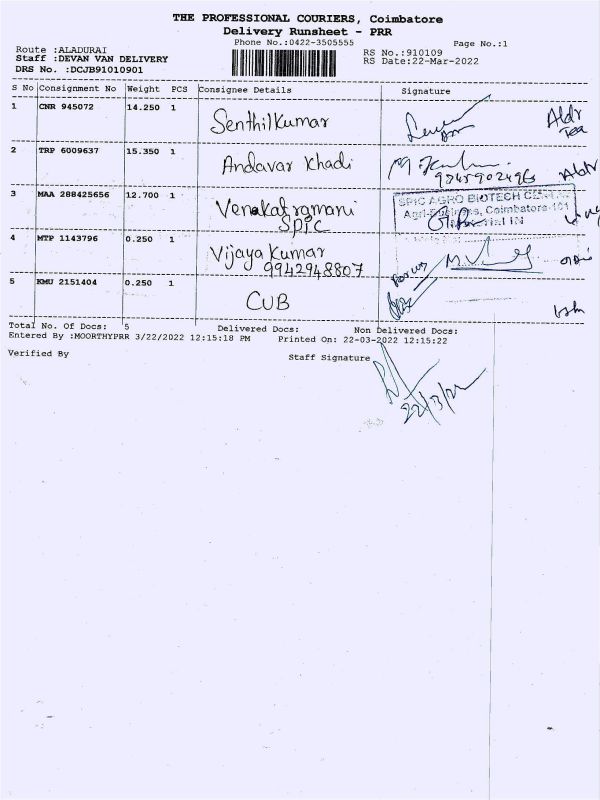 THE PROFESSIONAL COURIERS, Coimbatore
Delivery Runsheet - PRR
Phone No.:0422-3505555 Page No.:1
Route :ALADURAI RS No.:910109
Staff :DEVAN VAN DELIVERY RS Date:22-Mar-2022
DRS No. :DCJB91010901
S No Consignment No Weight PCS Consignee Details Signature
1 CNR 945072 14.250 1 Senthilkumar
2 TRP 6009637 15.350 1 Andavar Khadi
3 MAA 288425656 12.700 1 Venakatramani
SPIC
SPIC AGRO BIOTECH
Coimbatore-101
4 MTP 1143796 0.250 1 Vijaya Kumar
9942948807
5 KMU 2151404 0.250 1 CUB
Total No. Of Docs: 5 Delivered Docs: Non Delivered Docs:
Entered By :MOORTHYPRR 3/22/2022 12:15:18 PM Printed On: 22-03-2022 12:15:22
Verified By Staff Signature
22/3/22